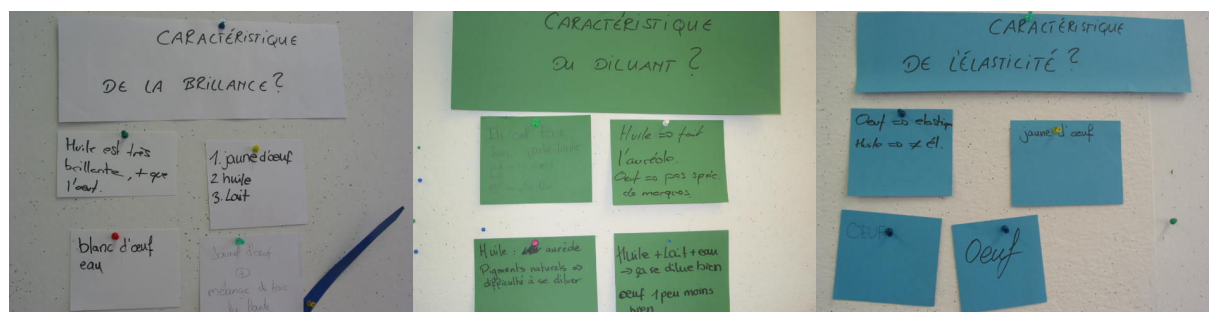 CARACTÉRISTIQUE
DE LA BRILLANCE?
Huile est très
brillante, + que
l'œuf.
1. jaune d'œuf
2 huile
3. Lait
blanc d'œuf
eau
Jaune d'œuf
mélange de
CARACTÉRISTIQUE
DU DILUANT ?
Huile => fait
l'auréole.
Oeuf => pas
de marques
Huile : auréole
Pigments naturels =>
difficulté à se diluer
Huile + Lait + eau
→ ça se dilue bien
œuf 1 peu moins
bien
CARACTÉRISTIQUE
DE L'ÉLASTICITÉ ?
Oeuf => elastiq
Huile => ≠ él.
jaune d'œuf
ŒUF
Oeuf